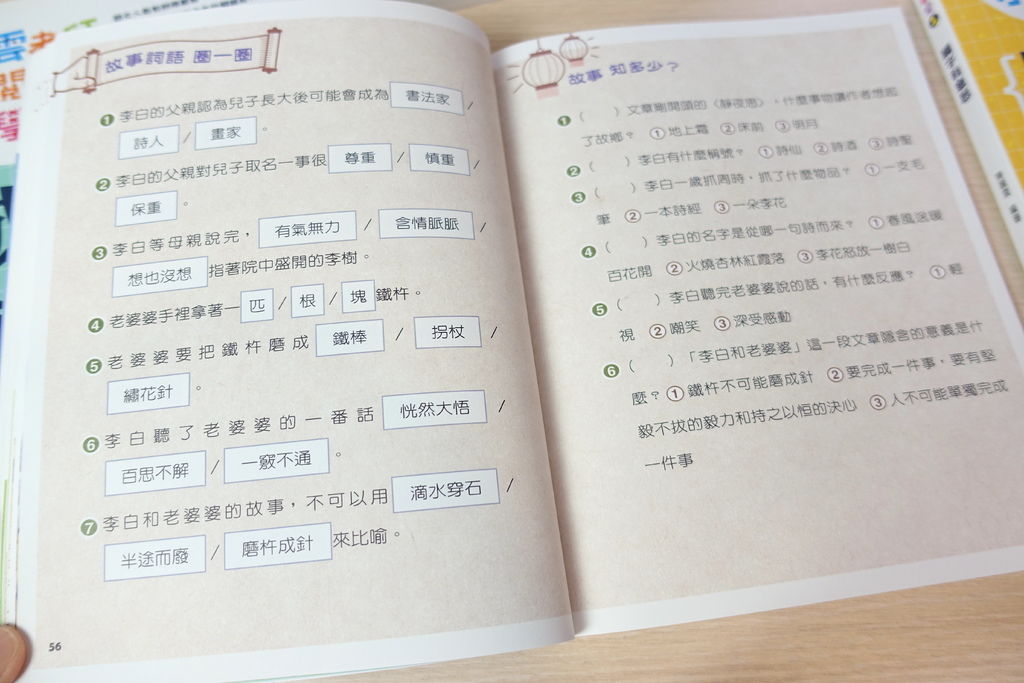 故事詞語 圈一圈
❶ 李白的父親認為兒子長大後可能會成為 書法家 /
詩人 / 畫家 。
❷ 李白的父親對兒子取名一事很 尊重 / 慎重 /
保重 。
❸ 李白等母親說完, 有氣無力 / 含情脈脈 /
想也沒想 指著院中盛開的李樹。
❹ 老婆婆手裡拿著一 匹 / 根 / 塊 鐵杵。
❺ 老婆婆要把鐵杵磨成 鐵棒 / 拐杖 /
繡花針 。
❻ 李白聽了老婆婆的一番話 恍然大悟 /
百思不解 / 一竅不通 。
❼ 李白和老婆婆的故事,不可以用 滴水穿石 /
半途而廢 / 磨杵成針 來比喻。
56
故事 知多少?
❶ ( ) 文章剛開頭的〈靜夜思〉,什麼事物讓作者想起
了故鄉? ①地上霜 ②床前 ③明月
❷ ( ) 李白有什麼稱號? ①詩仙 ②詩酒 ③詩聖
❸ ( ) 李白一歲抓周時,抓了什麼物品? ①一支毛
筆 ②一本詩經 ③一朵李花
❹ ( ) 李白的名字是從哪一句詩而來? ①春風送暖
百花開 ②火燒杏林紅霞落 ③李花怒放一樹白
❺ ( ) 李白聽完老婆婆說的話,有什麼反應? ①輕
視 ②嘲笑 ③深受感動
❻ ( ) 「李白和老婆婆」這一段文章隱含的意義是什
麼? ①鐵杵不可能磨成針 ②要完成一件事,要有堅
毅不拔的毅力和持之以恒的決心 ③人不可能單獨完成
一件事